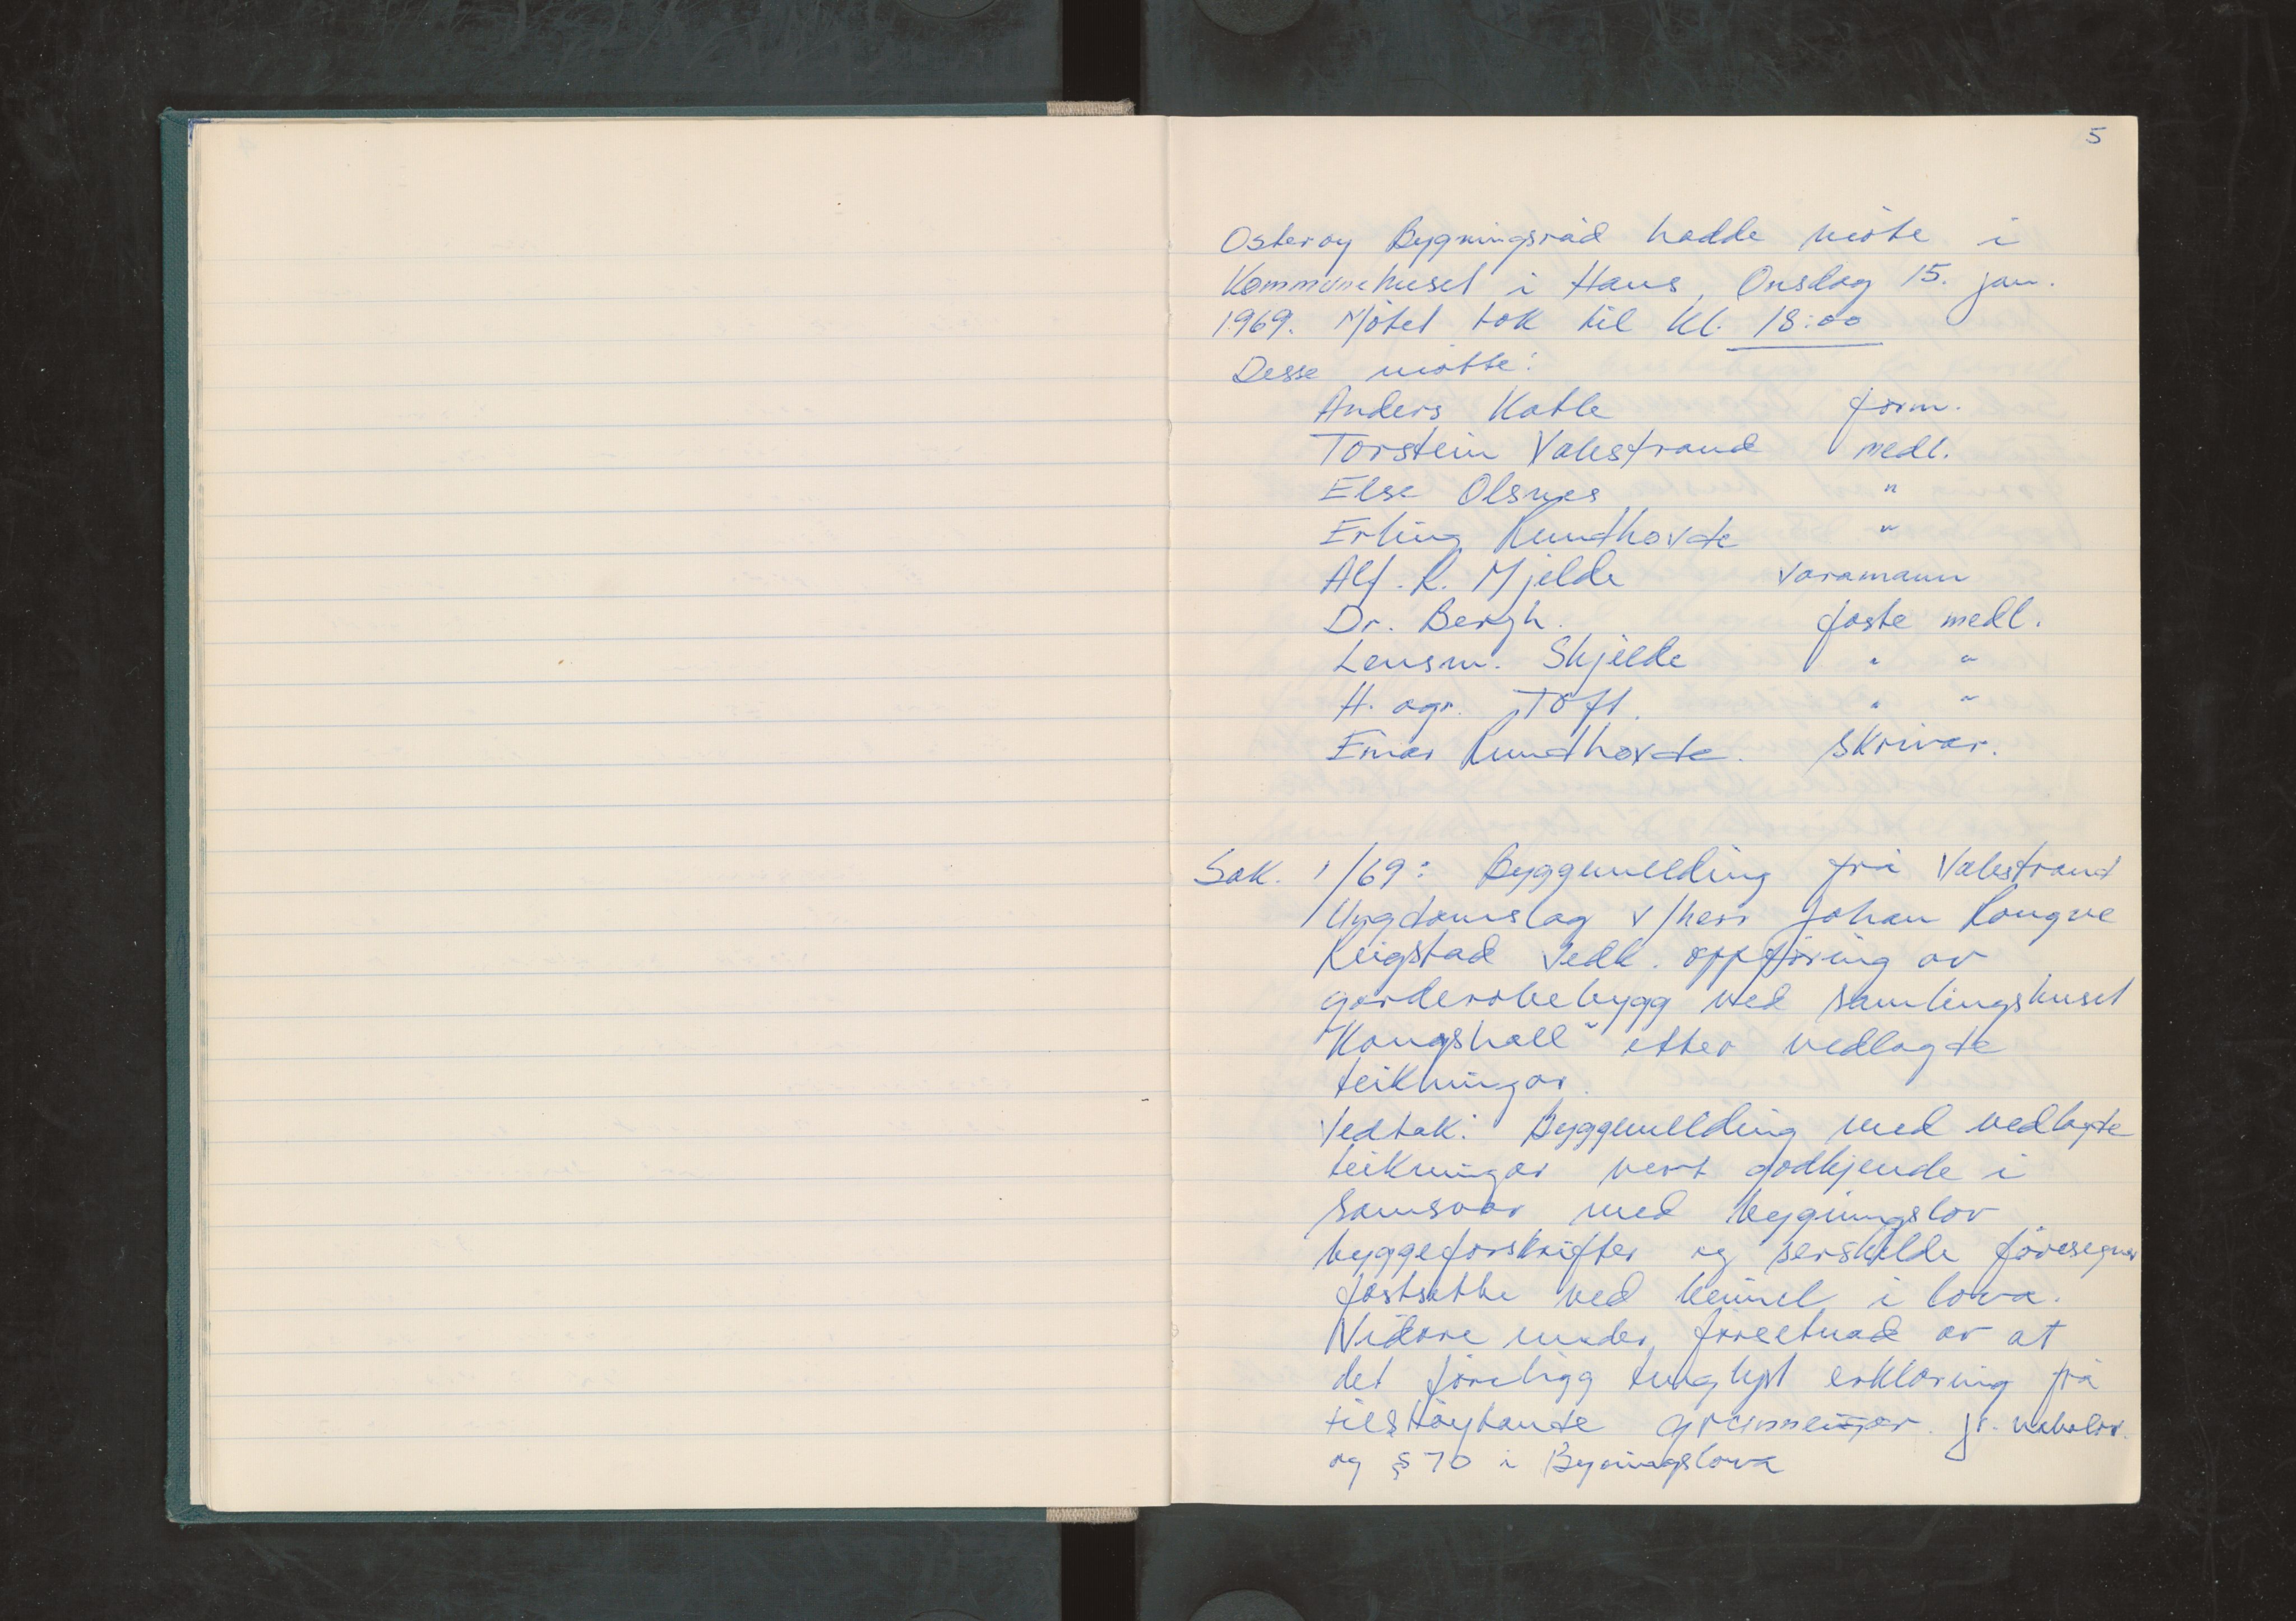 5
Osterøy Bygningsråd hadde møte i
Kommunehuset i Haus, Onsdag 15. jan.
1969. Møtet tok til kl. 18:00
Desse møtte:
Anders Katle form.
Torstein Valestrand medl.
Else Olsnes "
Erling Rundhovde "
Alf. R. Mjelde varamann
Dr. Bergh. faste medl.
Lensm. Skjelde " "
H. agr. Toft. " "
Einar Rundhovde. skrivar.
Sak. 1/69: Byggemelding frå Valestrand
Ungdomslag v/herr Johan Rongve
Reigstad vedk. oppføring av
garderobebygg ved samlingshuset
"Kongshall" etter vedlagte
teikningar.
Vedtak: Byggemelding med vedlagte
teikningar vert godkjende i
samsvar med bygningslov
byggeforskrifter og serskilde føresegner
fastsette ved heimel i lova.
Vidare under føresetnad av at
det føreligg tinglyst erklæring frå
tilstøytande jr. nabolov.
og § 70 i Bygningslova